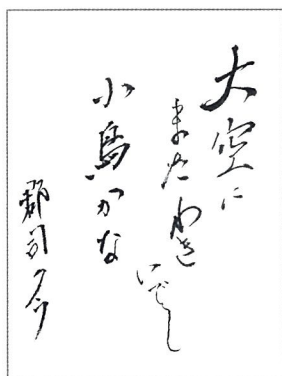 大空に
またわき
いでし
小鳥かな